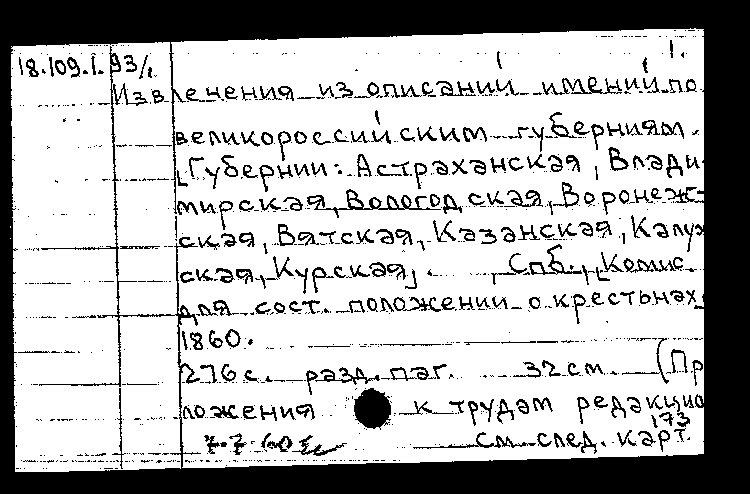 18.109.1.93/1 1.
Извлечения из описаний имений по
великороссийским губерниям.
[Губернии: Астраханская, Влади-
мирская, Вологодская, Воронеж-
ская, Вятская, Казанская, Калуж
ская, Курская]. Спб., [Комис.
для сост. положений о крестьнах,
1860.
276 с. разд. паг. 32 см. (Пр
ложения к трудам редакцио
173
см. след. карт.